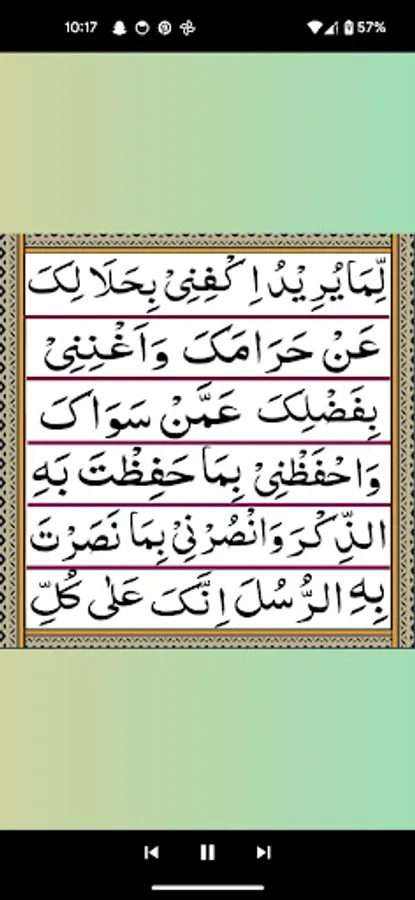 10:17 57%
لِّمَا يُرِيْدُ اِكْفِنِىْ بِحَلَا لِكَ
عَنْ حَرَامَكَ وَاَغْنِنِىْ
بِفَضْلِكَ عَمَّنْ سَوَاكَ
وَاحْفَظْنِىْ بِمَا حَفِظْتَ بَهِ
الذِّكْرَ وَانْصُرْنِىْ بِمَا نَصَرْتَ
بِهِ الرُّسُلَ اِنَّكَ عَلٰى كُلِّ